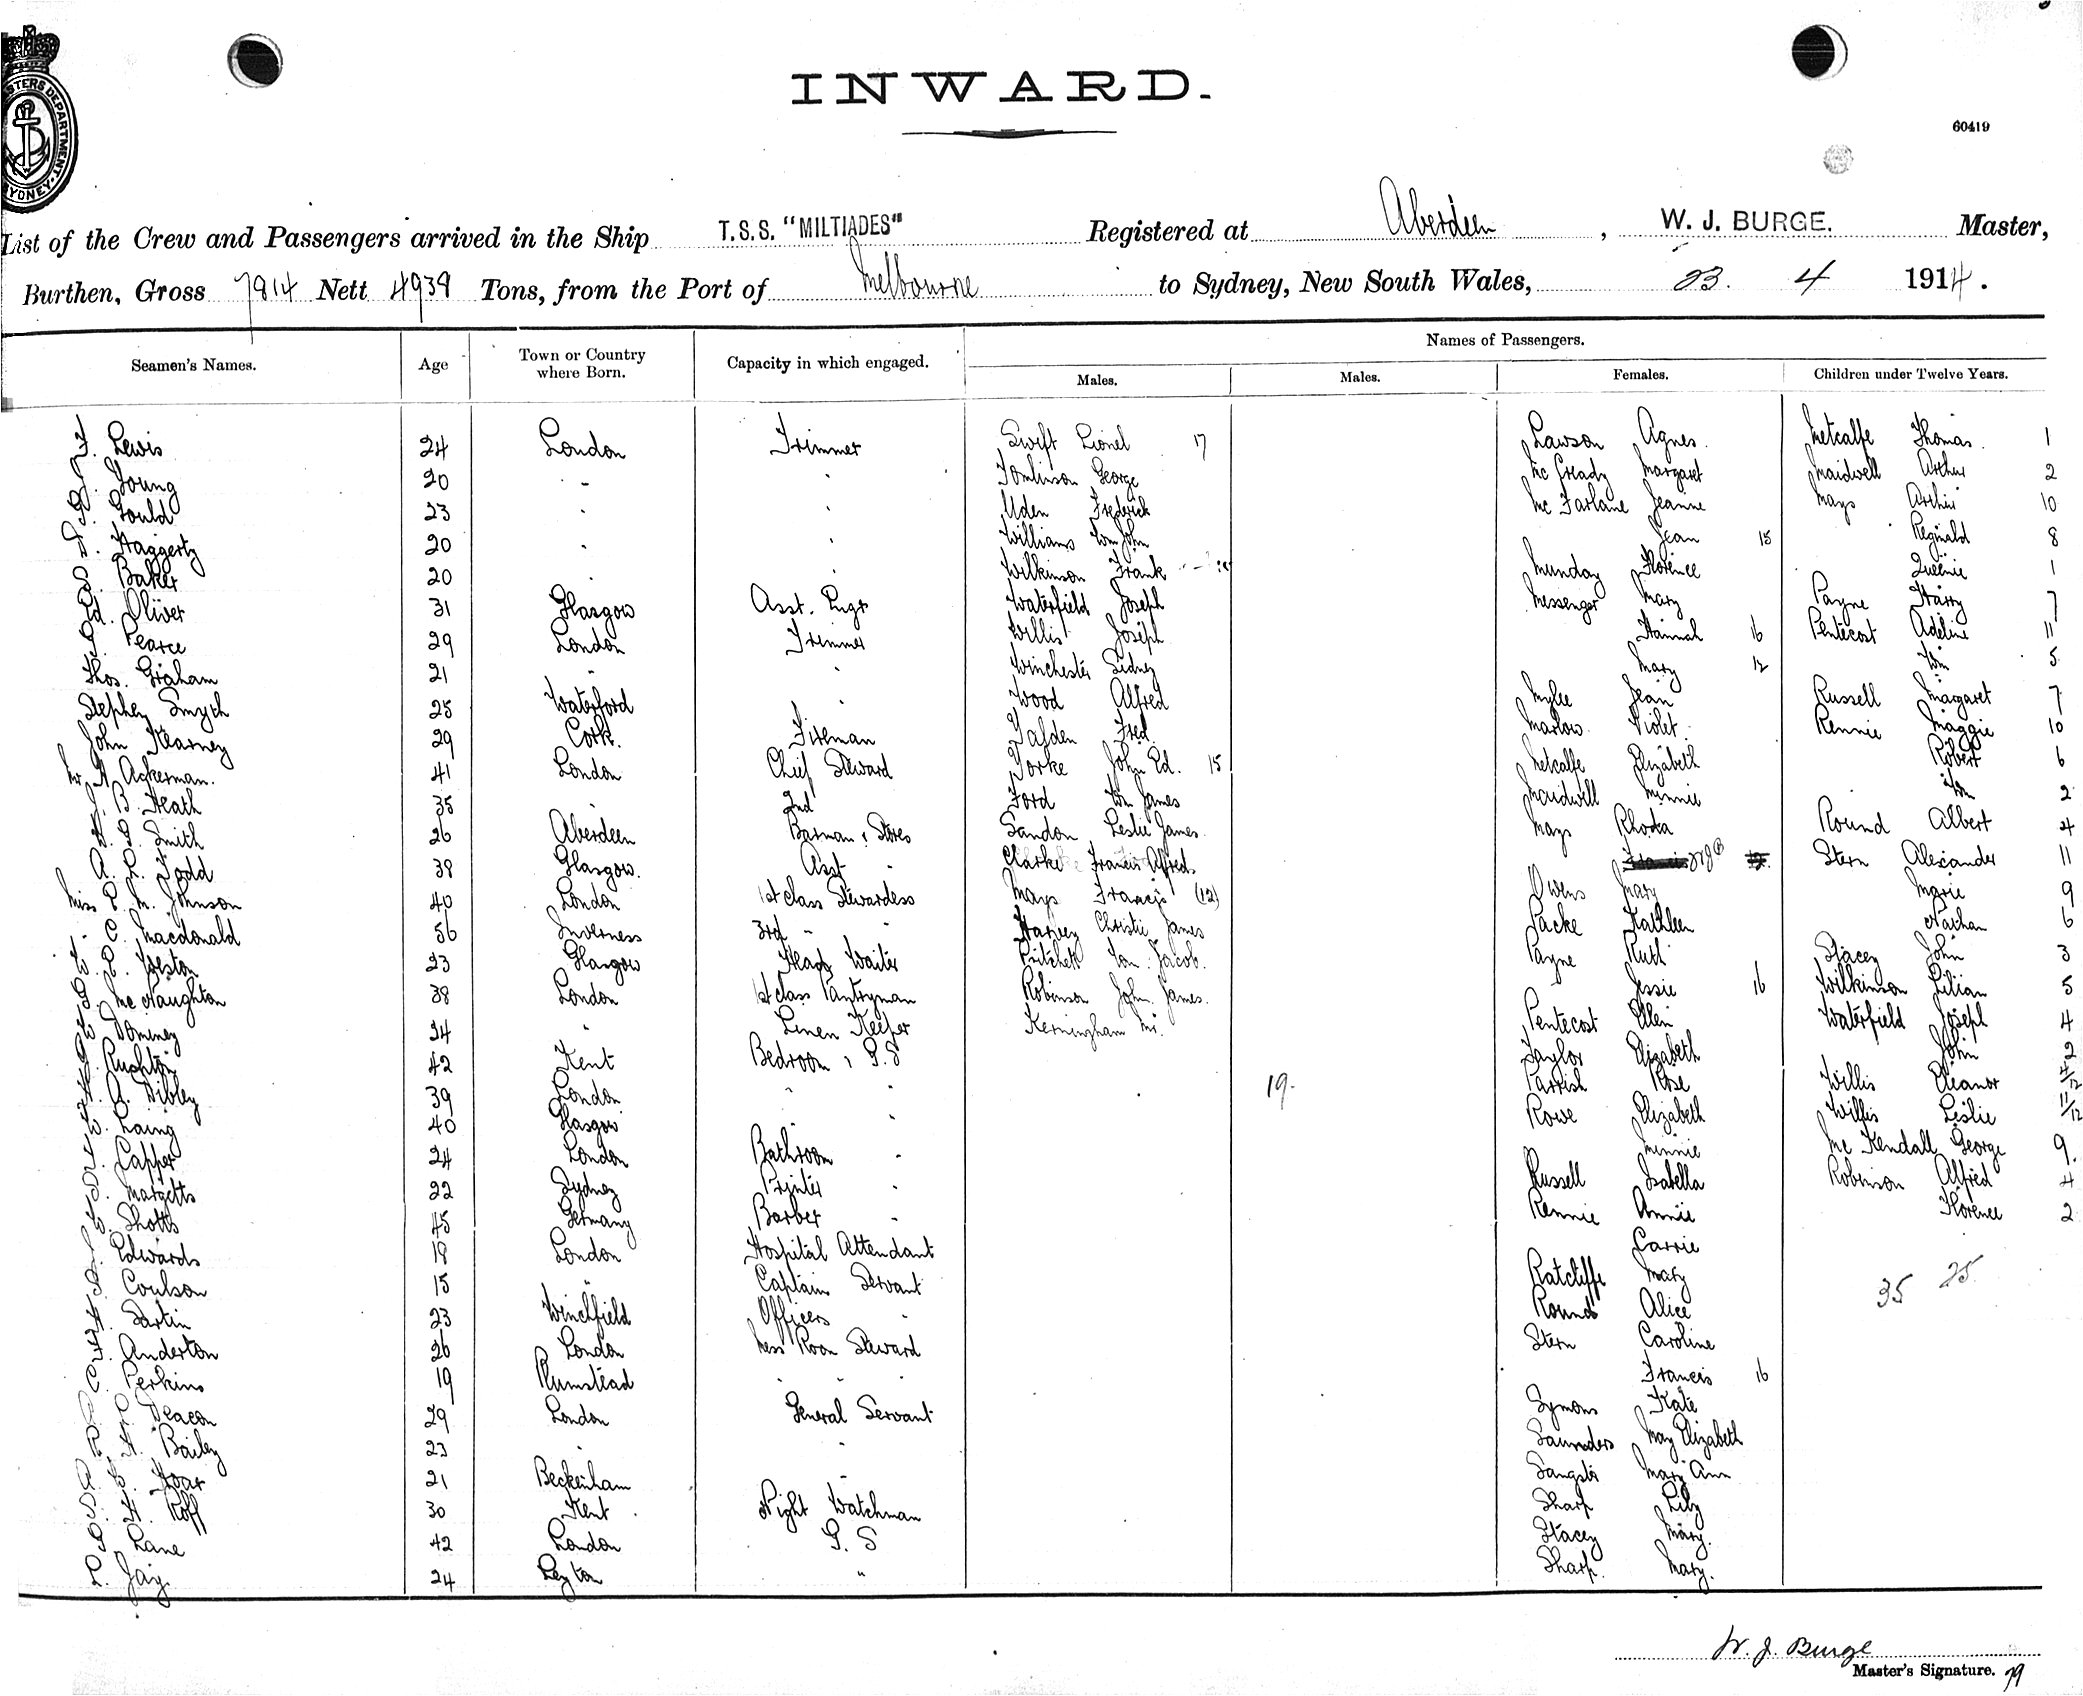 INWARD.
60419
MASTERS DEPARTMENT. SYDNEY.
List of the Crew and Passengers arrived in the Ship T.S.S. "MILTIADES" Registered at Aberdeen, W. J. BURGE. Master,
Burthen, Gross 7814 Nett 4938 Tons, from the Port of Melbourne to Sydney, New South Wales, 23. 4 1914.
Names of Passengers.
Seamen's Names. Age Town or Country where Born. Capacity in which engaged. Males. Males. Females. Children under Twelve Years.
Lewis 24 London Trimmer Swift Lionel 17 Lawson Agnes. Metcalfe Thomas. 1
Young 20 " " Tomlinson George Mc Cready Margaret Maidwell Arthur 2
Gould 23 " " Uden Frederick Mc Farlane Jeanne Mays Arthur 10
Haggerty 20 " " Williams Wm John Jean 15 Reginald 8
Baker 20 " " Wilkinson Frank Munday Florence Queenie 1
Ed. Oliver 31 Glasgow Asst. Engr Waterfield Joseph Messenger Mary Payne Harry 7
Pearce 29 London Trimmer Willis Joseph Hannah 16 Pentecost Adeline 11
Thos. Graham 21 " " Winchester Sidney Mary 12 Wm 5
Stephen Smyth 25 Waterford " Wood Alfred Mylee Jean Russell Margaret 7
John Kearney 29 Cork. Fireman Yalden Fred. Marlow Violet. Rennie Maggie 10
Mr A Ackerman. 41 London Chief Steward Yorke John Ed. 15 Metcalfe Elizabeth Robert 6
B. Heath 35 " 2nd Ford Wm James Maidwell Minnie Wm 2
Smith 26 Aberdeen Barman & Stores Sandon Leslie James. Mays Rhoda Round Albert 4
A. L. Todd 38 Glasgow. Asst " Clarke Francis Alfred. Stern Alexander 11
Miss E. M. Johnson 40 London 1st class Stewardess Mays Francis (12) Owens Mary Marie 9
C. Macdonald 56 Inverness 3rd " " Harvey Christie James Packe Kathleen Nathan 6
Weston 23 Glasgow Head Waiter Pritchett Wm. Jacob. Payne Ruth Stacey John 3
Mc Naughton 38 London 1st class Pantryman Robinson John James. Jessie 16 Wilkinson Lilian 5
Dominey 24 " Linen Keeper Kerningham Mr. Pentecost Ellen Waterfield Joseph 4
Rushton 42 Kent Bedroom & G.S Taylor Elizabeth John 2
A. Dibley 39 London " " 19. Parrish Rose Willis Eleanor 4/12
Laing 40 Glasgow " Rowe Elizabeth Willis Leslie 11/12
Capper 24 London Bathroom " Minnie Mc Kendall George 9.
Margetts 22 Sydney Printer " Russell Isabella Robinson Alfred 4
Shotts 45 Germany Barber " Rennie Annie Florence 2
Edwards 19 London Hospital Attendant Carrie
Coulson 15 " Captains Servant Ratcliffe Mary 35 25
Sartin 23 Winchfield Officers " Round Alice
Anderton 26 London Mess Room Steward Stern Caroline
Perkins 19 Plumstead " " " Francis 16
Deacon 29 London General Servant Symons Kate
Bailey 23 " " Saunders May Elizabeth
Hoar 21 Beckenham " Sangster Mary Ann
Roff 30 Kent Night Watchman Sharp Lily
Lane 42 London G. S Stacey Mary.
Jay 24 Leyton " Sharp. Mary.
W. J. Burge
Master's Signature.